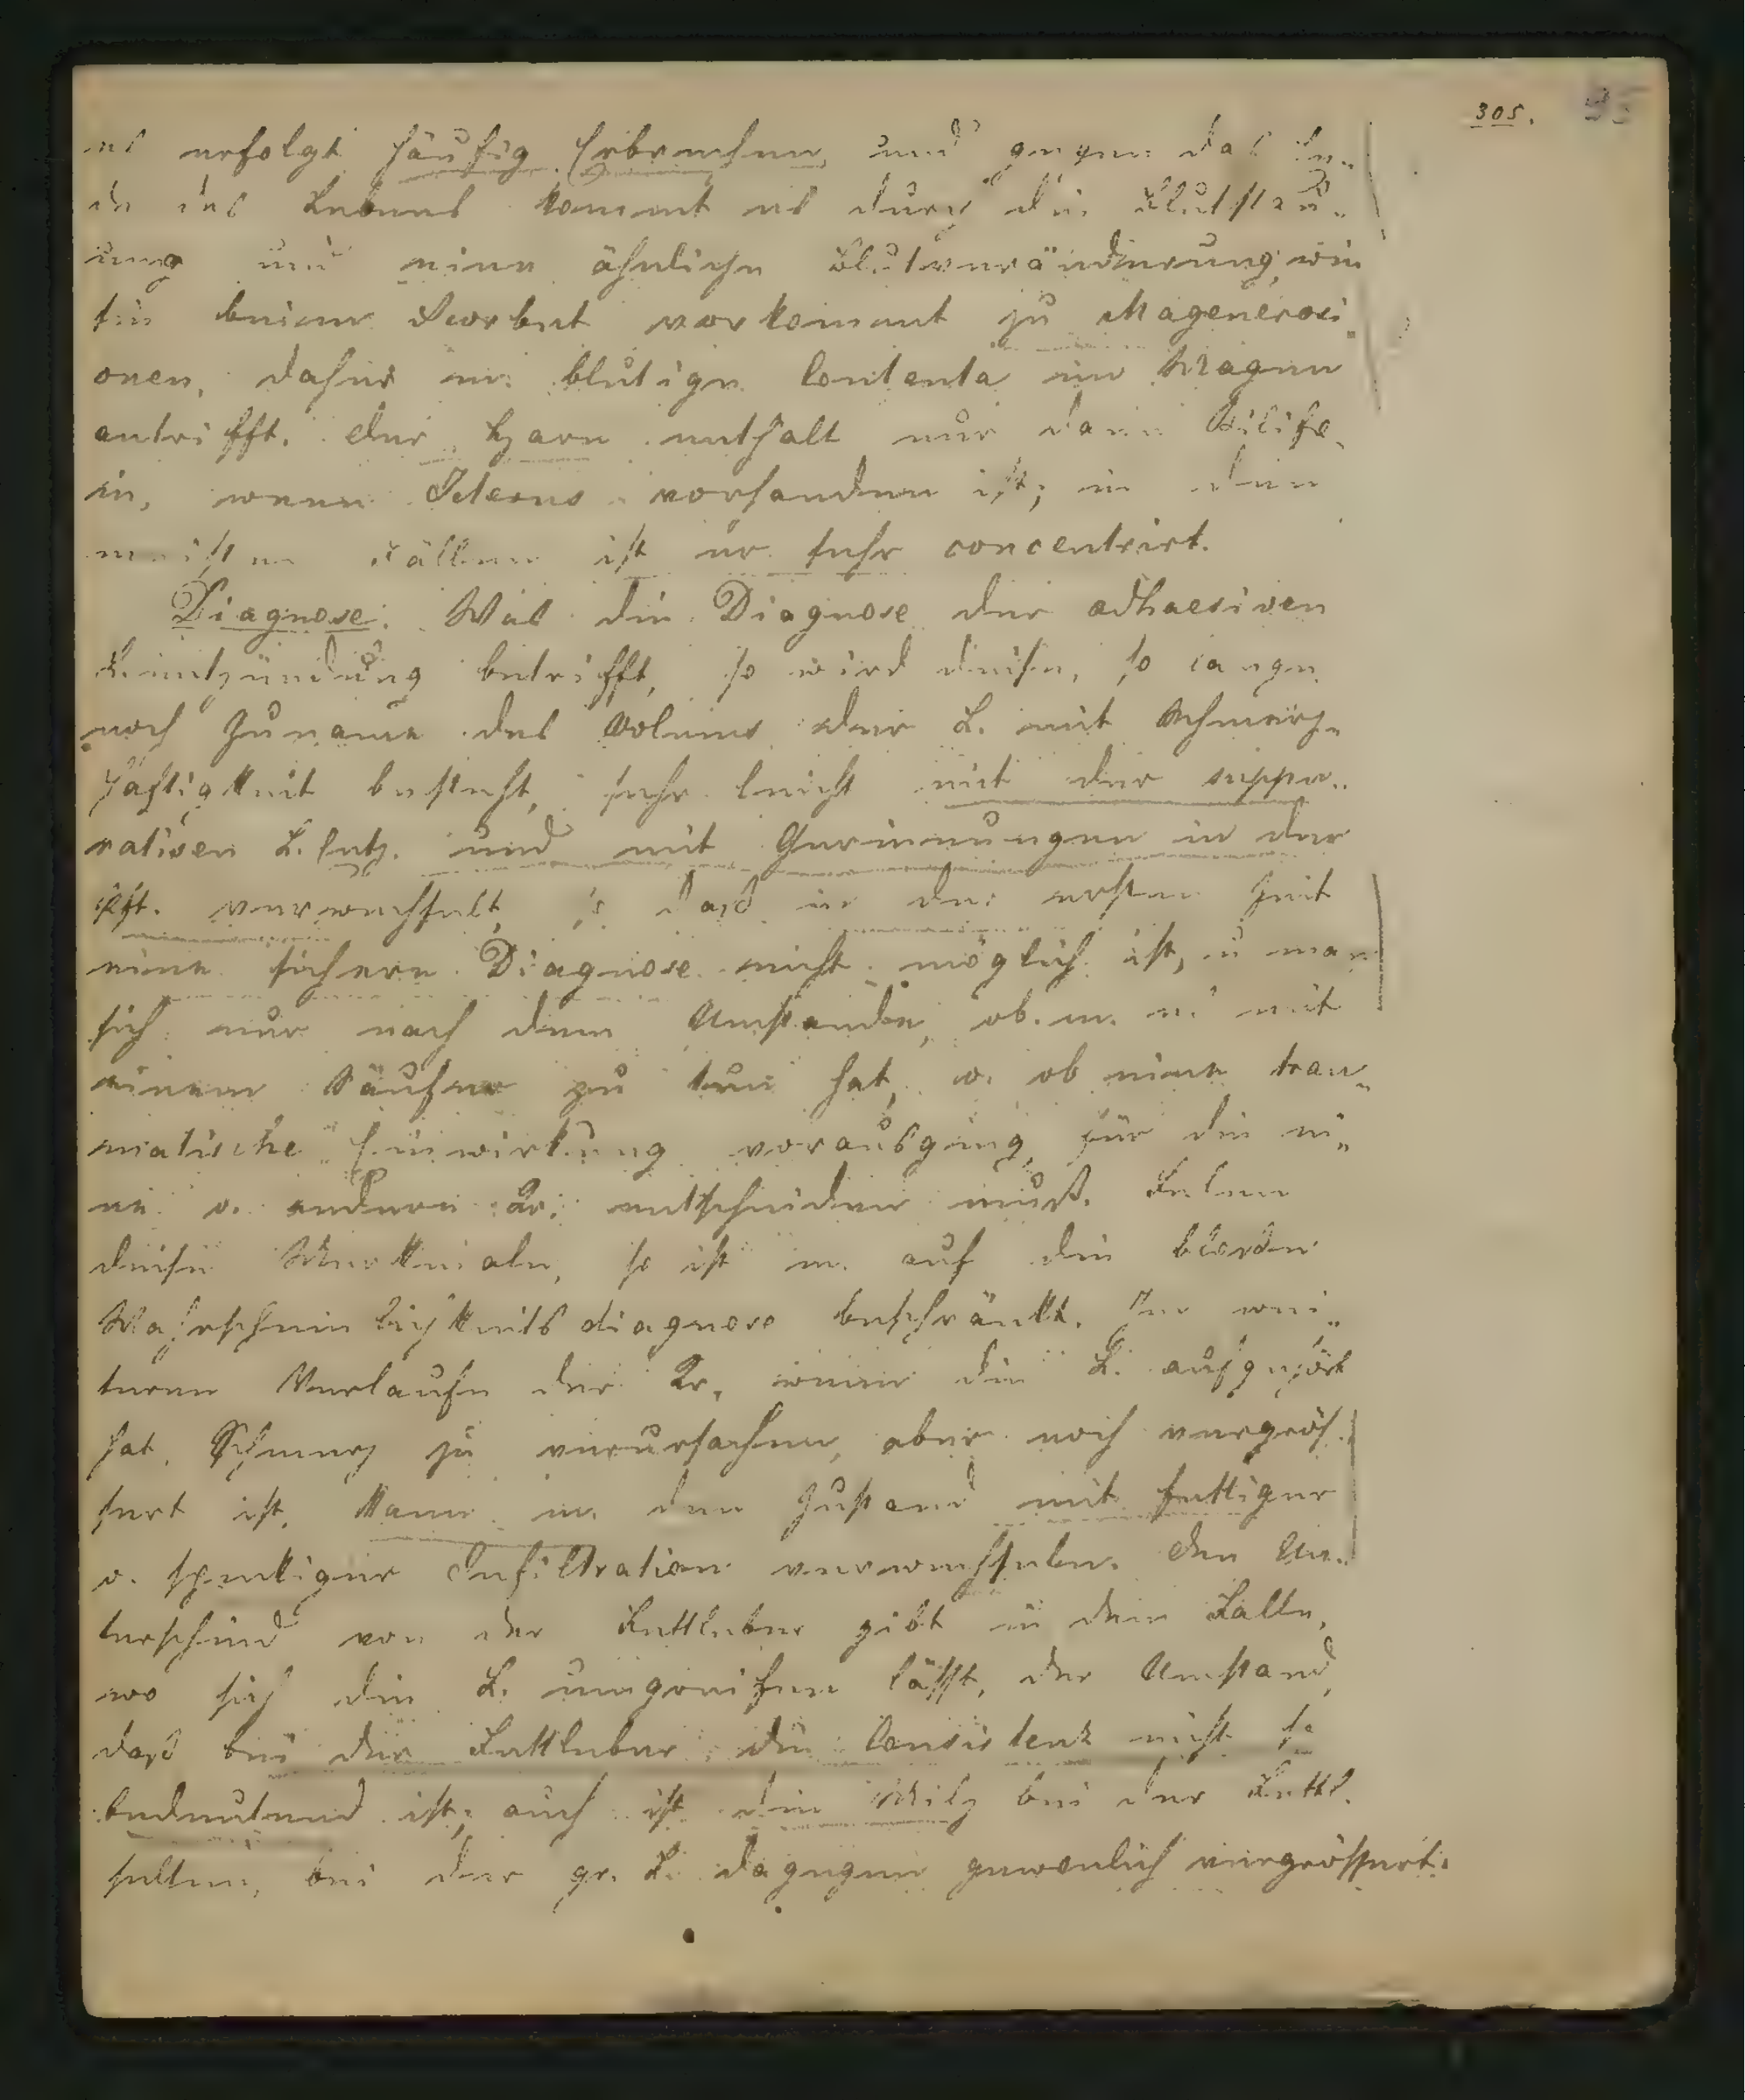 305.
es erfolgt häufig Erbrechen, und gegen das En„
de des Lebens kommt es durch die Blutstau„
ung und eine ähnliche Blutveränderung, wie
sie beim Scorbut vorkommt zu Magenerosi„
onen, daher m. blutige Contenta im Magen
antrifft. Der Harn enthalt nur dann Bilife„
in, wenn Icterus vorhanden ist; in den
meisten Fällen ist er sehr concentrirt.
Diagnose. Was die Diagnose der adhaesiven
L. entzündung betrifft, so wird diese, so lange
noch Zuname des Volums der L. mit Schmerz„
haftigkeit besteht, sehr leicht mit der suppu„
rativen L. Entz. und mit Gerinnungen in der
Pft. verwechselt, so dass in der ersten Zeit
eine sichere Diagnose nicht möglich ist, u man
sich nur nach dem Umstande, ob m. es mit
einem Säufer zu tun hat, o. ob eine trau„
matische Einwirkung vorausging, für die ei„
ne o. andere Kr. entscheiden muß. Felen
diese Merkmale, so ist m. auf die blosse
Wahrscheinlichkeitsdiagnose beschränkt. Im wei„
teren Verlaufe der Kr., wenn die L. aufgehört
hat, Schmerz zu verursachen, aber noch vergrös„
sert ist, kann m. den Zustand mit fettiger
o. speckiger Infiltration verwechseln. Den Un„
terschied von der Fettleber gibt in dem Falle,
wo sich die L. umgreifen lässt, der Umstand,
dass bei der Fettleber die Consistenz nicht so
bedeutend ist; auch ist die Milz bei der Fettl.
selten, bei der gr. L. dagegen gewenlich vergrössert.